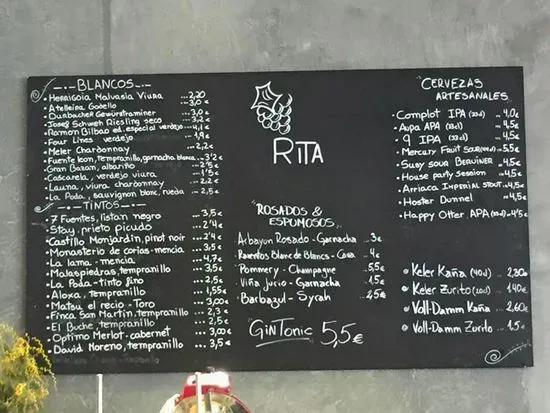 BLANCOS
Herrigoia Malvasia Viura ... 2,20
Atelleira Godello ... 3,0 €
Durbacher Gewürztraminer ... 3,0 €
Josef Schweh Riesling seco
Ramon Bilbao ed. especial verdejo ... 4,1 €
Four Lines verdejo
Meler Chardonnay ... 2,2 €
Fuente leon, tempranillo, garnacha blanca ... 3'2 €
Gran Bazan, albariño ... 2'5 €
Cascarela, verdejo viura ... 1'5 €
Launa, viura chardonnay ... 2,2 €
La Poda, sauvignon blanc, rueda ... 2,5 €
TINTOS
7 Fuelles, listan negro ... 3,5 €
Stay, prieto picudo ... 2'4 €
Castillo Monjardin, pinot noir ... 2'4 €
Monasterio de corias - mencia ... 4,7 €
La lama - mencia ... 3,5 €
Malaspiedras, tempranillo
La Poda - tinto fino ... 2,5 €
Aloxa, tempranillo ... 1,55 €
Matsu, el recio - Toro ... 3,00 €
Finca San Martin, tempranillo ... 2,3 €
El Buche, tempranillo ... 2,5 €
Optimo Merlot - cabernet ... 3,00 €
David Moreno, tempranillo ... 3,5 €
RITA
ROSADOS &
ESPUMOSOS
Arbayun Rosado - Garnacha ... 3 €
Raventos Blanc de Blancs - Cava ... 4 €
Pommery - Champagne ... 5,5 €
Viña Jurio - Garnacha ... 1,5 €
Barbazul - Syrah ... 2,5 €
GinTonic 5,5 €
CERVEZAS
ARTESANALES
Complot IPA (33cl) ... 4,0 €
Aupa APA (33cl) ... 4,5 €
9 IPA (33cl) ... 4,5 €
Mercury Fruit Sour ... 5 €
Susy sour BERLINER ... 4,5 €
House party session ... 4,5 €
Arriaca IMPERIAL STOUT ... 4,5 €
Hoster Dunnel ... 4,5 €
Happy Otter APA ... 4'5 €
Keler Kaña (40cl) ... 2,30 €
Keler Zurito (20cl) ... 1,40 €
Voll-Damm Kaña ... 2,60 €
Voll-Damm Zurito ... 1,5 €